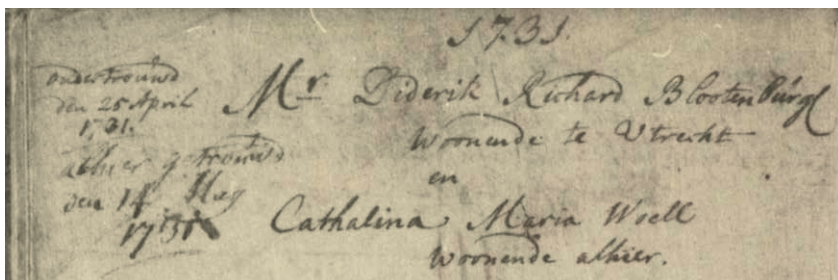 1731.
ondertrouwd
den 25 April
1731.
alhier getrouwd
den 14 Mey
1731
Mr. Diderik Richard Blootenburgh
Woonende te Utrecht
en
Cathalina Maria Woell
Woonende alhier.